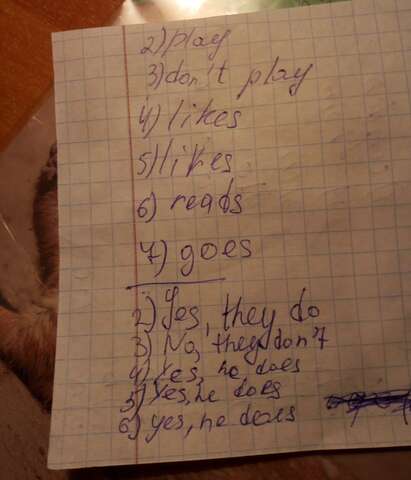 2) play
3) don't play
4) likes
5) likes
6) reads
7) goes
2) Yes, they do
3) No, they don't
4) Yes, he does
5) Yes, he does
6) yes, he does